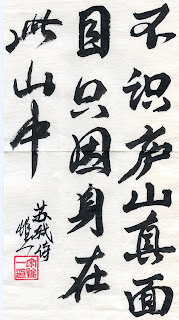 不识庐山真面
目只因身在
此山中
苏轼诗